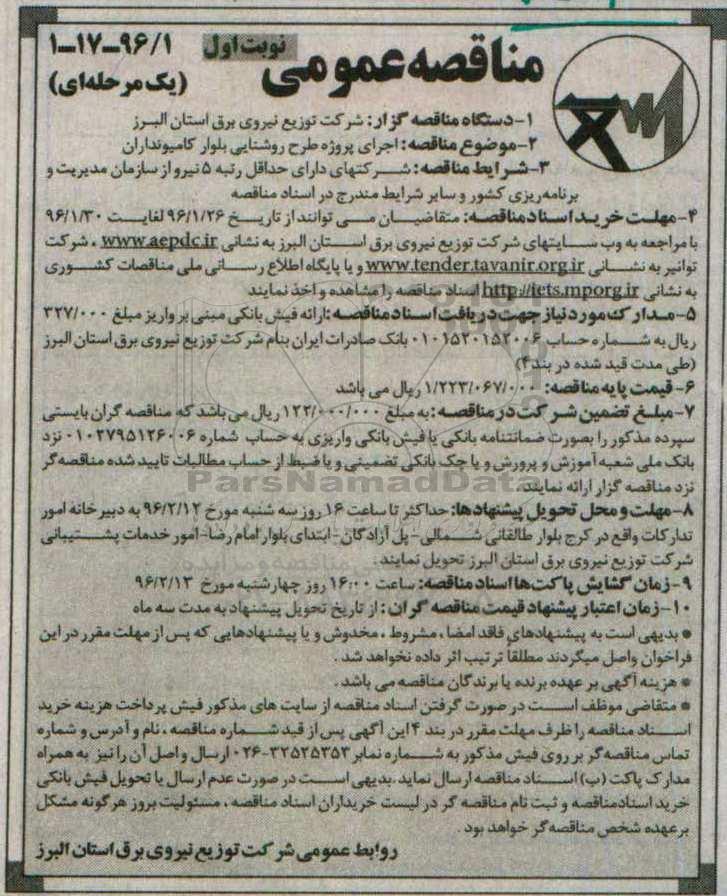 مناقصه عمومی
نوبت اول
۱-۱۷-۹۶/۱
(یک مرحله‌ای)
۱-دستگاه مناقصه گزار: شرکت توزیع نیروی برق استان البرز
۲-موضوع مناقصه: اجرای پروژه طرح روشنایی بلوار کامیونداران
۳-شرایط مناقصه: شرکتهای دارای حداقل رتبه ۵ نیرو از سازمان مدیریت و
برنامه‌ریزی کشور و سایر شرایط مندرج در اسناد مناقصه
۴-مهلت خرید اسناد مناقصه: متقاضیان می توانند از تاریخ ۹۶/۱/۲۶ لغایت ۹۶/۱/۳۰
با مراجعه به وب سایتهای شرکت توزیع نیروی برق استان البرز به نشانی www.aepdc.ir ، شرکت
توانیر به نشانی www.tender.tavanir.org.ir و یا پایگاه اطلاع رسانی ملی مناقصات کشوری
به نشانی http://iets.mporg.ir اسناد مناقصه را مشاهده و اخذ نمایند
۵-مدارک مورد نیاز جهت دریافت اسناد مناقصه: ارائه فیش بانکی مبنی بر واریز مبلغ ۳۲۷/۰۰۰
ریال به شماره حساب ۰۱۰۱۵۲۰۱۵۲۰۰۶ بانک صادرات ایران بنام شرکت توزیع نیروی برق استان البرز
(طی مدت قید شده در بند۴)
۶- قیمت پایه مناقصه: ۱/۲۲۳/۰۶۷/۰۰۰ ریال می باشد
۷-مبلغ تضمین شرکت در مناقصه: به مبلغ ۱۲۲/۰۰۰/۰۰۰ ریال می باشد که مناقصه گران بایستی
سپرده مذکور را بصورت ضمانتنامه بانکی یا فیش بانکی واریزی به حساب شماره ۰۱۰۲۷۹۵۱۲۶۰۰۶ نزد
بانک ملی شعبه آموزش و پرورش و یا چک بانکی تضمینی و یا ضبط از حساب مطالبات تایید شده مناقصه گر
نزد مناقصه گزار ارائه نمایند.
ParsNamadData
۸-مهلت و محل تحویل پیشنهادها: حداکثر تا ساعت ۱۶ روز سه شنبه مورخ ۹۶/۲/۱۲ به دبیرخانه امور
تدارکات واقع در کرج بلوار طالقانی شمالی- پل آزادگان- ابتدای بلوار امام رضا- امور خدمات پشتیبانی
شرکت توزیع نیروی برق استان البرز تحویل نمایند.
۹-زمان گشایش پاکت‌ها اسناد مناقصه: ساعت ۱۶:۰۰ روز چهارشنبه مورخ ۹۶/۲/۱۳
۱۰-زمان اعتبار پیشنهاد قیمت مناقصه گران: از تاریخ تحویل پیشنهاد به مدت سه ماه
● بدیهی است به پیشنهادهای فاقد امضا، مشروط ، مخدوش و یا پیشنهادهایی که پس از مهلت مقرر در این
فراخوان واصل میگردند مطلقاً ترتیب اثر داده نخواهد شد .
● هزینه آگهی بر عهده برنده یا برندگان مناقصه می باشد .
● متقاضی موظف است در صورت گرفتن اسناد مناقصه از سایت های مذکور فیش پرداخت هزینه خرید
اسناد مناقصه را ظرف مهلت مقرر در بند ۴ این آگهی پس از قید شماره مناقصه ، نام و آدرس و شماره
تماس مناقصه گر بر روی فیش مذکور به شماره نمابر ۳۲۵۲۵۳۵۳-۰۲۶ ارسال و اصل آن را نیز به همراه
مدارک پاکت (ب) اسناد مناقصه ارسال نماید. بدیهی است در صورت عدم ارسال یا تحویل فیش بانکی
خرید اسناد مناقصه و ثبت نام مناقصه گر در لیست خریداران اسناد مناقصه ، مسئولیت بروز هرگونه مشکل
بر عهده شخص مناقصه گر خواهد بود .
روابط عمومی شرکت توزیع نیروی برق استان البرز